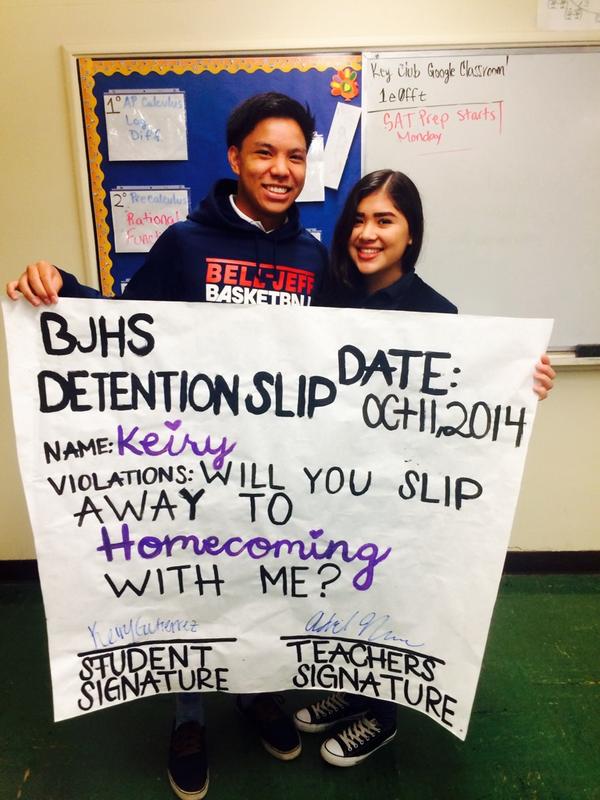 1° AP Calculus
Log
Diff.
2° Precalculus
Rational
Func
Key Club Google Classroom!
1e0fft
SAT Prep Starts
Monday
BELL-JEFF
BASKETBALL
BJHS
DETENTION SLIP
DATE:
OCT 11, 2014
NAME: Keiry
VIOLATIONS: WILL YOU SLIP
AWAY TO
Homecoming
WITH ME?
Keiry Gutierrez
STUDENT
SIGNATURE
TEACHERS
SIGNATURE